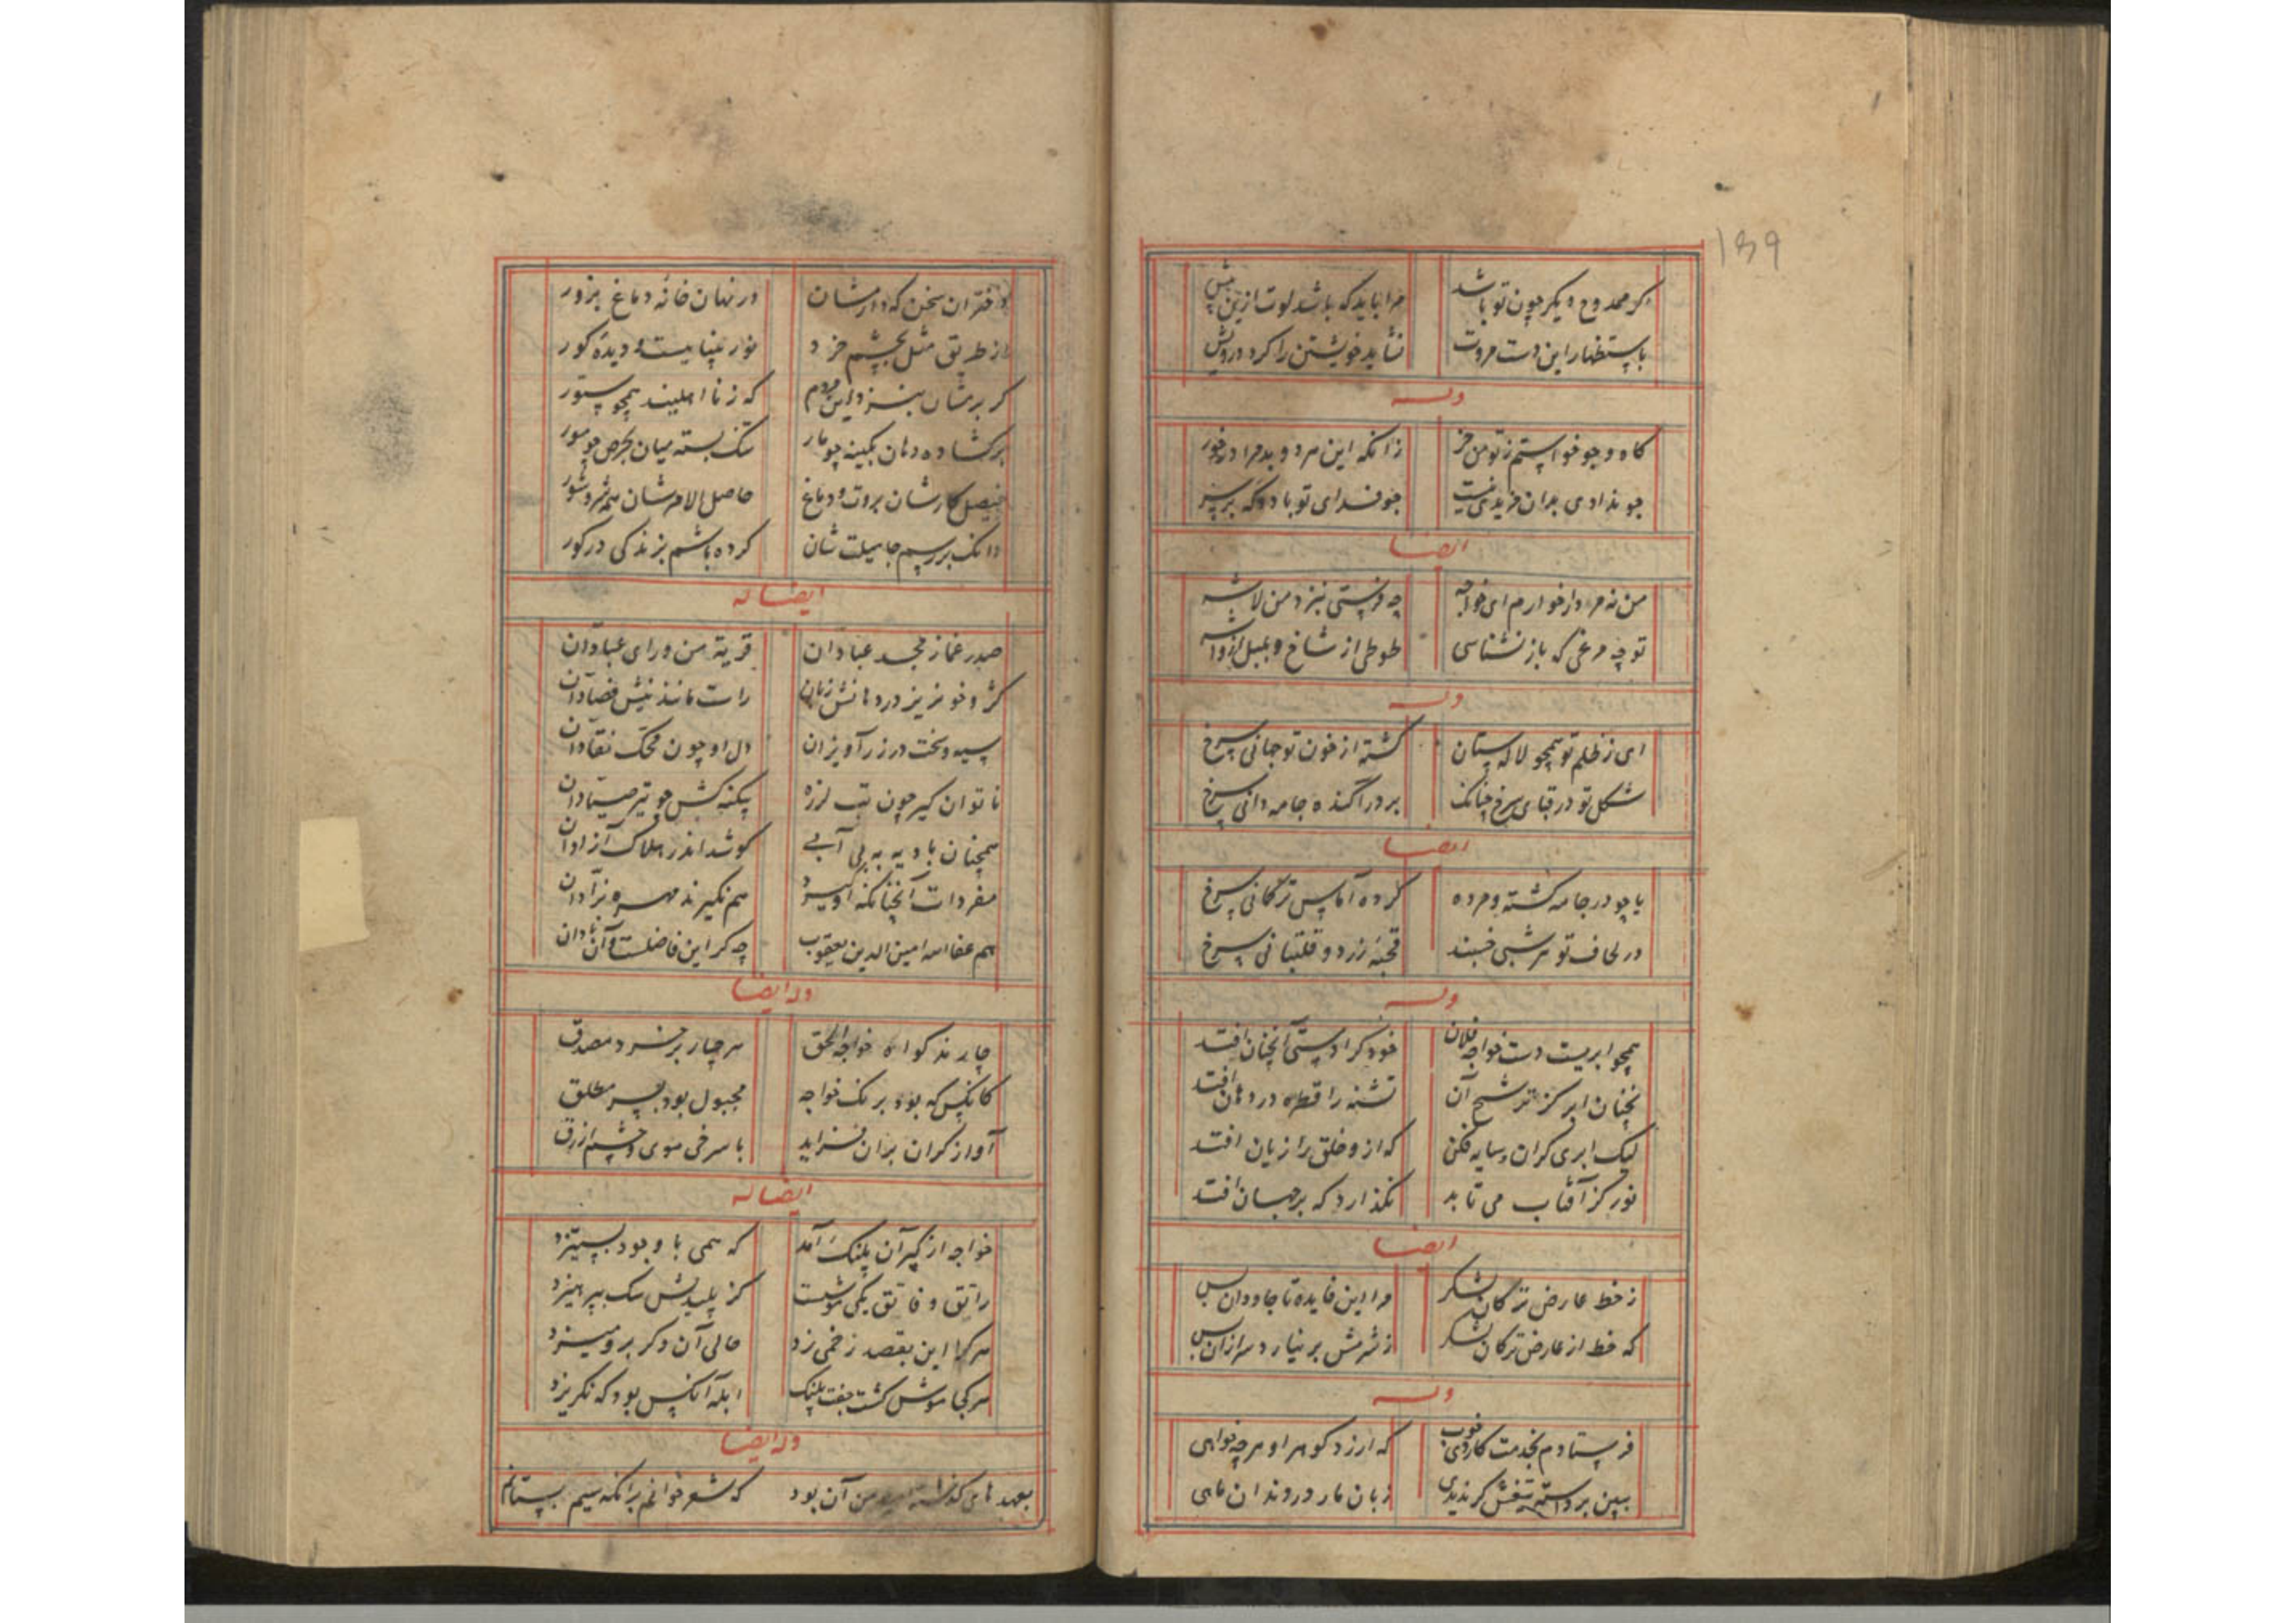 139
اگر ممدوح دیگر چون تو باشد مرا باید که باشد لوت ازین بیش
باستظهار این دست مروت نشاید خویشتن را کرد درویش
وله
کاه و جو خواستم ز تو من خر زانکه این هر دو بد مرا در خور
جو ندادی بدان خریدی نیست جو فدای تو باد و که بر سر
ایضا
من نه مردار خوارم ای خواجه چه فرستی بنزد من لاشه
تو چه مرغی که باز نشناسی طوطی از شاخ و بلبل از واشه
وله
ای ز ظلم تو همچو لاله ستان گشته از خون تو جهانی سرخ
شکل تو در قبای سرخ چنانک بر در آکنده جامه دانی سرخ
ایضا
یا چو در جامه کشته و مرده کرده آماس ترکانی سرخ
در لحاف تو هر شبی خسبند قحبه زرد و قلتبانی سرخ
وله
همچو ابریست دست خواجه فلان خود کرا دستی آنچنان افتد
نچنان ابر کز ترشح آن تشنه را قطره در دهان افتد
لیک ابری کران و سایه فکن که ازو خلق را زیان افتد
نور کز آفتاب می تابد نگذارد که بر جهان افتد
ایضا
ز خط عارض ترکان لشکر مرا این فایده تا جاودان بس
که خط از عارض ترکان لشکر ز شرمش بر نیارد سر ازان پس
وله
فرستادم بخدمت کاردی خوب که ارزد گوهر او هر چه خواهی
ببین بر دسته تیغش گر ندیدی زبان مار در دندان ماهی
دختران سخن که دارمشان در نهان خانه دماغ بزور
از طریق مثل بچشم خرد نور بینایست و دیده کور
گر برشان بنزد این مردم که ز نا اهلیند همچو ستور
برگشاده دهان بکینه چو مار تنگ بسته میان بحرص چو مور
فیصل کارشان بروت و دماغ حاصل الامرشان همه شر و شور
دانک بر رسم جاهلیت شان کرده باشم بزندگی در گور
ایضا له
صدر غماز مجد عبادان قریة من ورای عبادان
کژ و خونریز در دهانش زبان راست مانند نیش فصادان
سیه و سخت در زر آویزان دل او چون محک نقادان
ناتوان گیر چون تب لرزه پیکنه کش چو تیر صیادان
همچنان بادیه به بی آبی کوشد اندر هلاک آزادان
مفردات آنچنانکه او سپرد هم نگیرند مهره نرادان
هم عفا الله امین الدین یعقوب چه گر این فاضلست و آن نادان
وله ایضا
چارند گواه خواجه الحق هر چار بر خرد مصدق
کانکس که بود برنگ خواجه مجبول بود بشر مطلق
آواز گران بران فزاید با سرخی موی و چشم ازرق
ایضا له
خواجه از کبر آن پلنگ آمد که همی با وجود بستیزد
راتق و فاتق یکی موشست کز پلیدیش سگ بپرهیزد
هر کرا این بقصد زخمی زد حالی آن دگر برو میزد
هر کجا موش گشت جفت پلنگ ابله آنکس بود که نگریزد
وله ایضا
بعهدهای گذشته امید من آن بود که شعر خوانم برانکه سیم بستانم